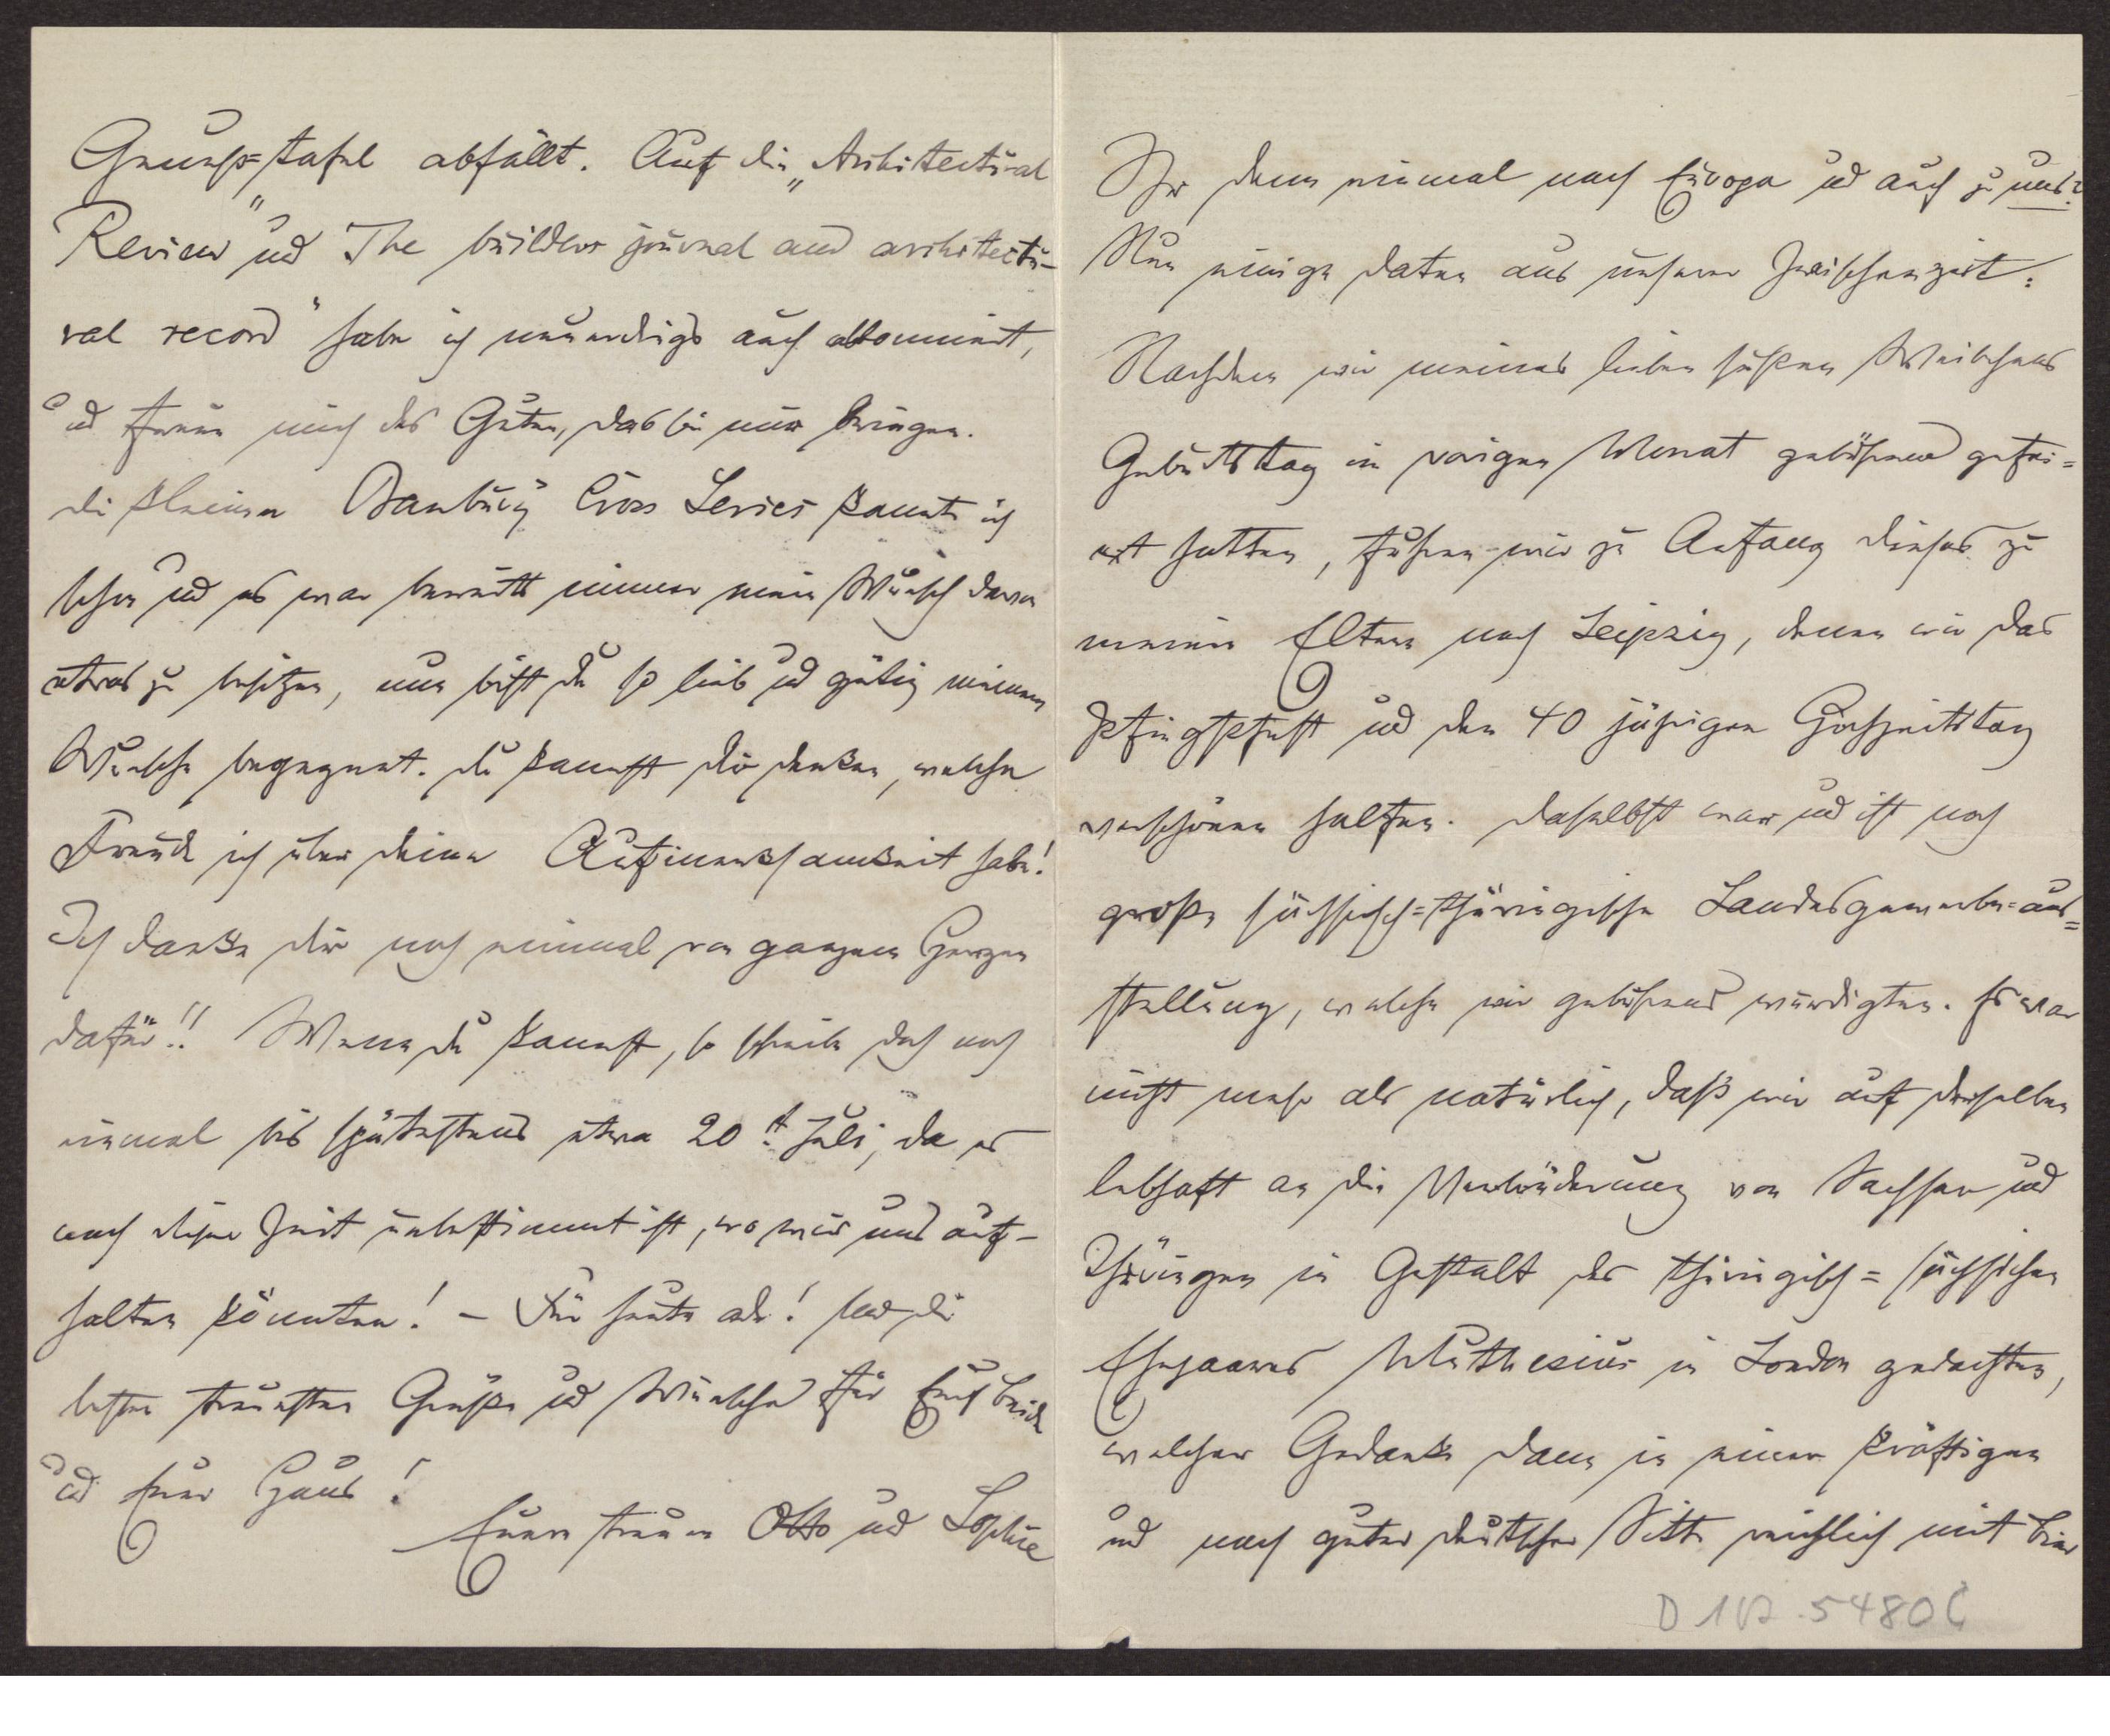 Genuß=tafel abfällt. Auf die „Architectural
Review" und The builders journal and architectu-
ral record" habe ich neuerdings auch abonniert,
und freue mich des Guten, das sie mir bringen.
Die kleinen Banbury Cross Series kannte ich
schon und es war bereits immer mein Wunsch davon
etwas zu besitzen, nun bist du so lieb und gütig meinem
Wunsche begegnet. Du kannst dir denken, welche
Freude ich über deine Aufmerksamkeit habe!
Ich danke dir noch einmal von ganzem Herzen
dafür!! Wenn du kannst, so schreibe doch noch
einmal bis spätestens etwa 20t Juli, da es
nach dieser Zeit unbestimmt ist, wo wir uns auf-
halten könnten! – Für heute ade! und die
besten treuesten Grüße und Wünsche für Euch beide
und Euer Haus!
Eure treuen Otto und Sophie
Ihr denn einmal nach Europa und auch zu uns?
Nun einige Daten aus unserer Zwischenzeit:
Nachdem wir meines lieben süßen Weibchens
Geburtstag im vorigen Monat gebührend gefei=
ert hatten, fuhren wir zu Anfang dieses zu
meinen Eltern nach Leipzig, denen wir das
Pfingstfest und den 40 jährigen Hochzeitstag
verschönen halfen. Daselbst war und ist noch
große sächsisch=thüringische Landesgewerbe=aus=
stellung, welche wir gebührend würdigten. Es war
nicht mehr als natürlich, daß wir auf derselben
lebhaft an die Verbrüderung von Sachsen und
Thüringen in Gestalt des thüringisch=sächsischen
Ehepaares Muthesius in London gedachten,
welcher Gedanke dann in einer kräftigen
und nach guter deutscher Sitte reichlich mit Bier
D 102.5480 C